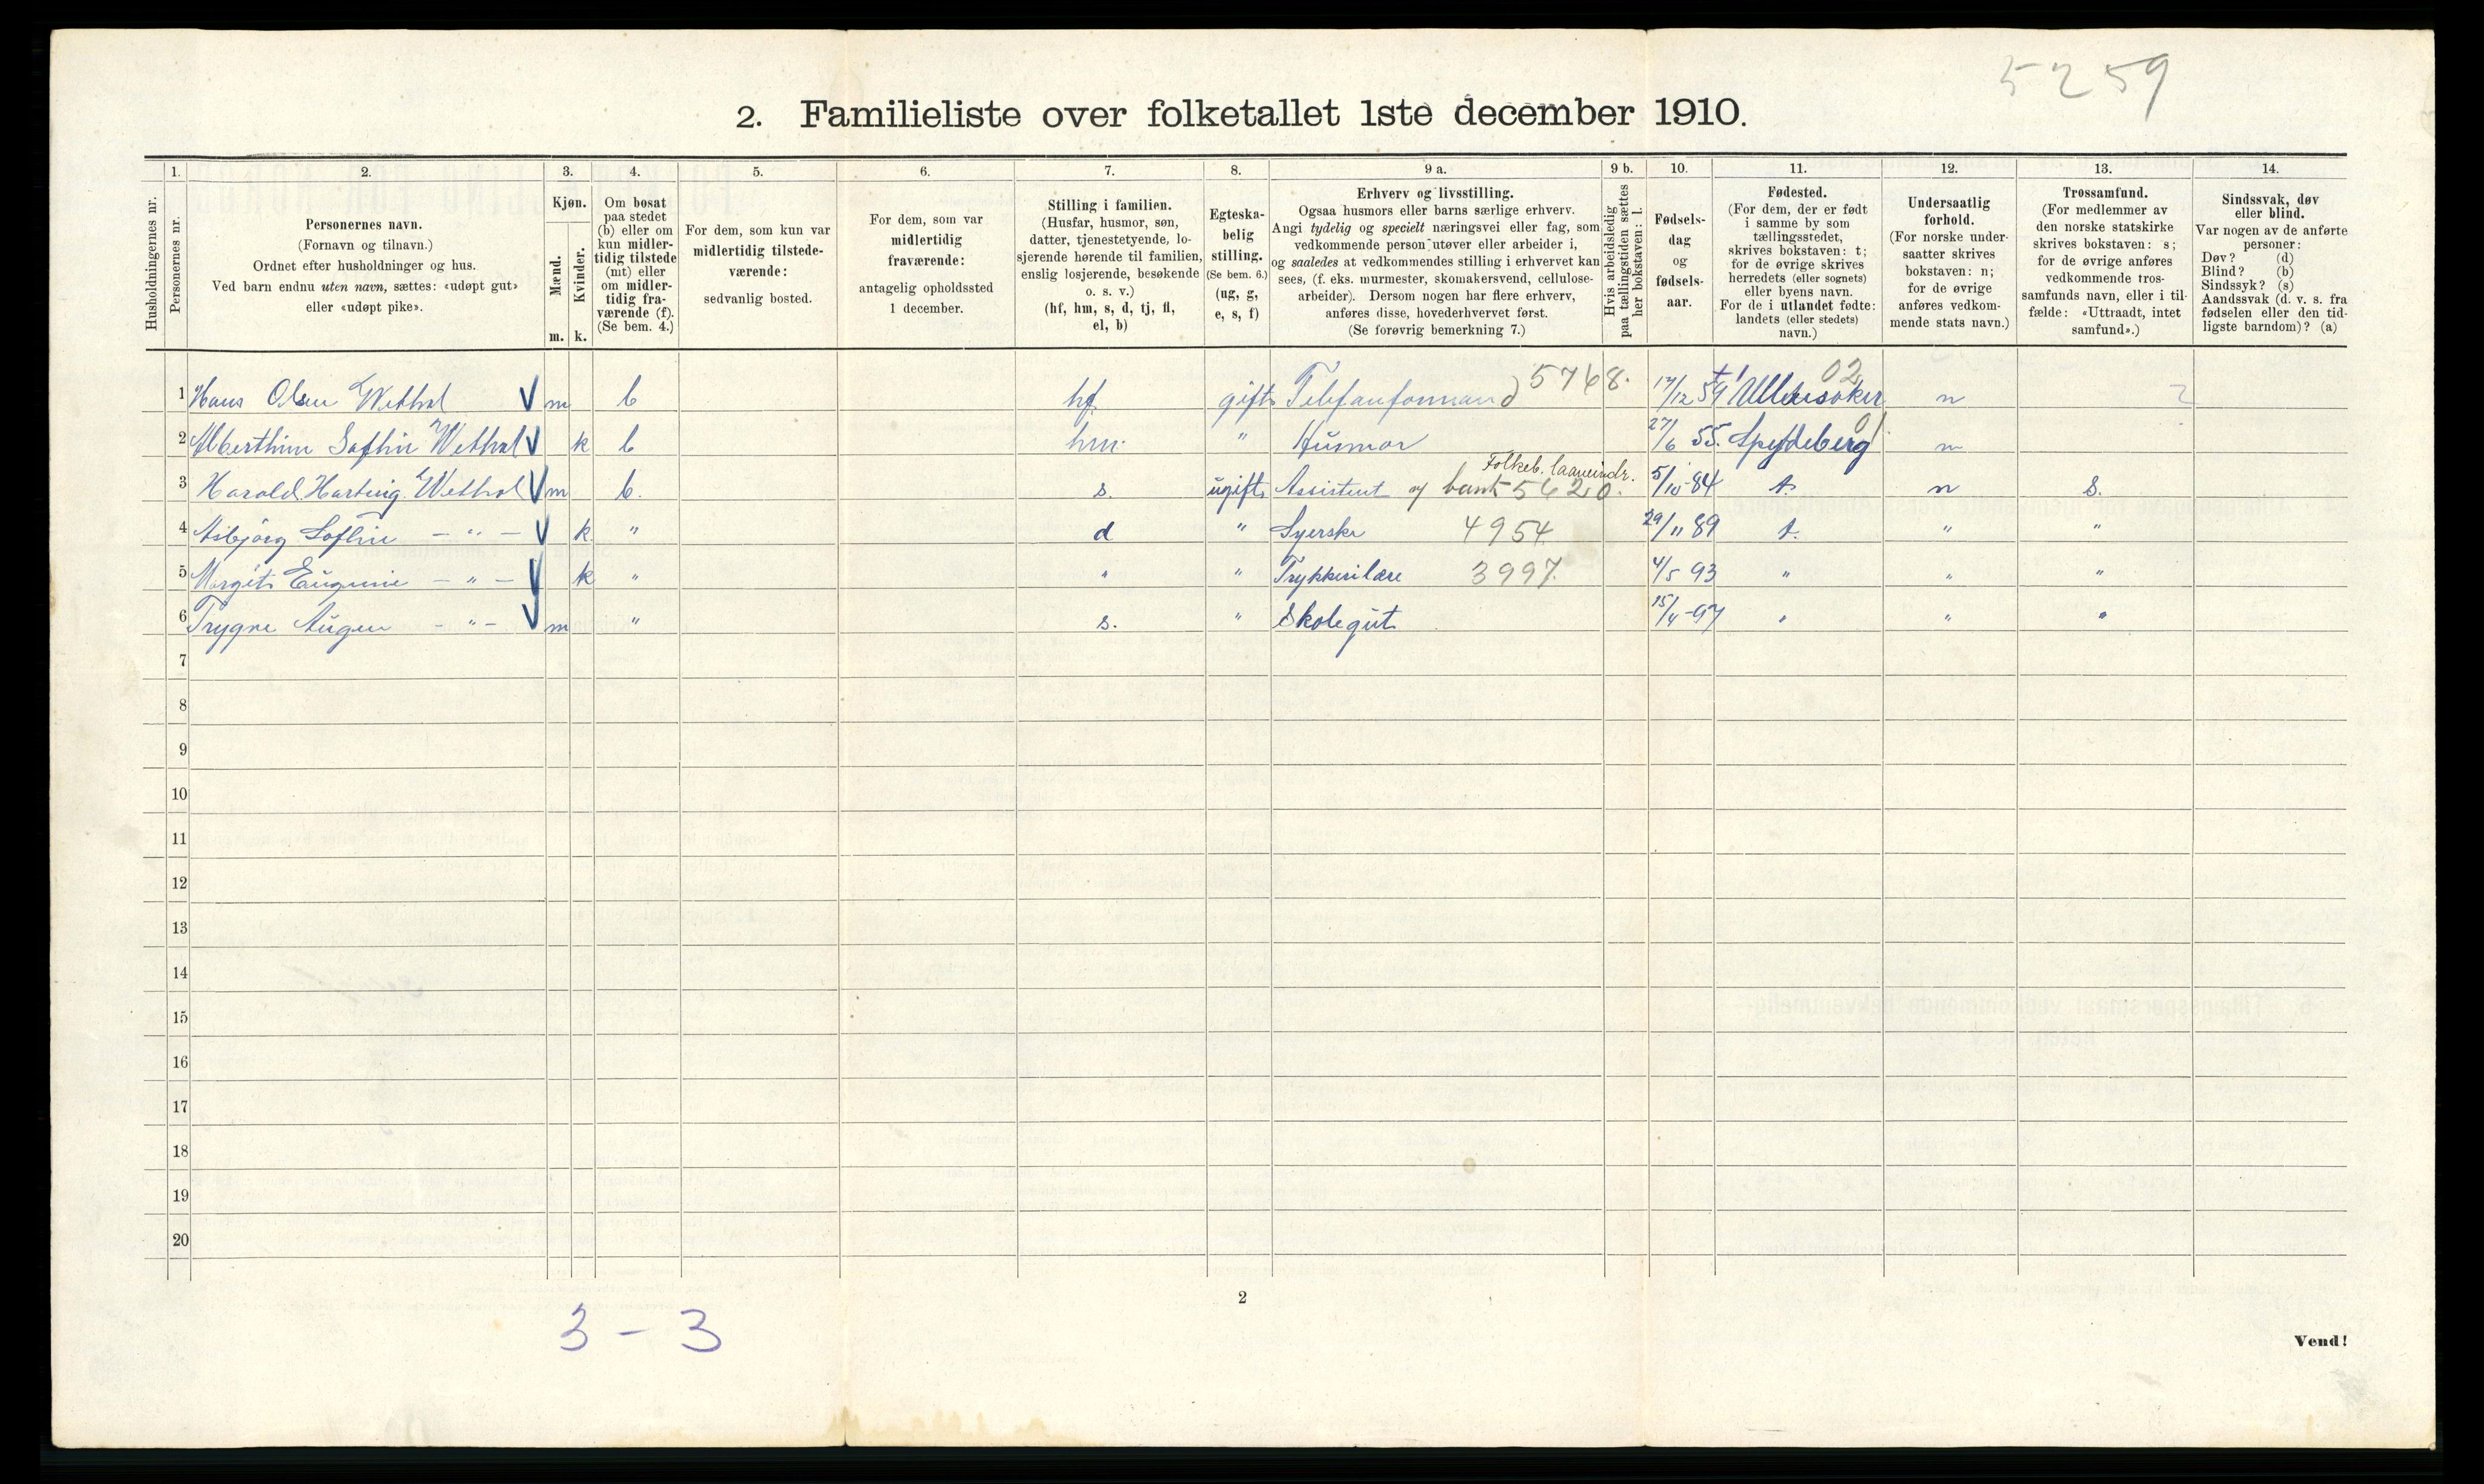 5259
2. Familieliste over folketallet 1ste december 1910.
1. 2. 3. 4. 5. 6. 7. 8. 9 a. 9 b. 10. 11. 12. 13. 14.
Husholdningernes nr.
Personernes nr.
Personernes navn.
(Fornavn og tilnavn.)
Ordnet efter husholdninger og hus.
Ved barn endnu uten navn, sættes: «udøpt gut»
eller «udøpt pike».
Kjøn.
Mænd.
Kvinder.
m. k.
Om bosat
paa stedet
(b) eller om
kun midler-
tidig tilstede
(mt) eller
om midler-
tidig fra-
værende (f).
(Se bem. 4.)
For dem, som kun var
midlertidig tilstede-
værende:
sedvanlig bosted.
For dem, som var
midlertidig
fraværende:
antagelig opholdssted
1 december.
Stilling i familien.
(Husfar, husmor, søn,
datter, tjenestetyende, lo-
sjerende hørende til familien,
enslig losjerende, besøkende
o. s. v.)
(hf, hm, s, d, tj, fl,
el, b)
Egteska-
belig
stilling.
(Se bem. 6.)
(ug, g,
e, s, f)
Erhverv og livsstilling.
Ogsaa husmors eller barns særlige erhverv.
Angi tydelig og specielt næringsvei eller fag, som
vedkommende person utøver eller arbeider i,
og saaledes at vedkommendes stilling i erhvervet kan
sees, (f. eks. murmester, skomakersvend, cellulose-
arbeider). Dersom nogen har flere erhverv,
anføres disse, hovederhvervet først.
(Se forøvrig bemerkning 7.)
Hvis arbeidsledig
paa tællingstiden sættes
her bokstaven: l.
Fødsels-
dag
og
fødsels-
aar.
Fødested.
(For dem, der er født
i samme by som
tællingsstedet,
skrives bokstaven: t;
for de øvrige skrives
herredets (eller sognets)
eller byens navn.
For de i utlandet fødte:
landets (eller stedets)
navn.)
Undersaatlig
forhold.
(For norske under-
saatter skrives
bokstaven: n;
for de øvrige
anføres vedkom-
mende stats navn.)
Trossamfund.
(For medlemmer av
den norske statskirke
skrives bokstaven: s;
for de øvrige anføres
vedkommende tros-
samfunds navn, eller i til-
fælde: «Uttraadt, intet
samfund».)
Sindssvak, døv
eller blind.
Var nogen av de anførte
personer:
Døv? (d)
Blind? (b)
Sindssyk? (s)
Aandssvak (d. v. s. fra
fødselen eller den tid-
ligste barndom)? (a)
1 Hans Olsen Wethal m b hf gift 5768. 17/12 Ullensaker 02 n
2 Sofhie Wethal k b hm. " Husmor 27/6 55. Spydeberg n
3 Harald Hartvig Wethal m b. s. ugift Assistent Folkeb. 5620. 5/10-84 t. n s.
4 Asbjørg Sofhie - " - k " d " Syerske 4954 29/11 89 t. " "
5 Margit Eugenie - " - k " " " Trykkerilære 3997. 4/5 93 " " "
6 Trygve - " - m " s. " Skolegut 15/4-97 " " "
7
8
9
10
11
12
13
14
15
16
17
18
19
20
2
3 - 3
Vend!